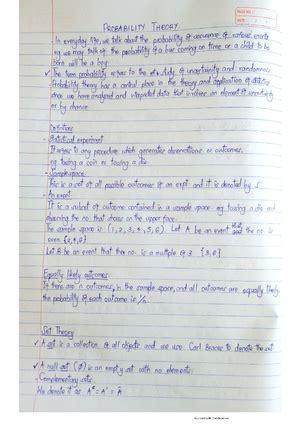 PROBABILITY THEORY
- In everyday life, we talk about the probability of occurence of various events
eg we may talk of the probability of a bus coming on time or a child to be
born will be a boy.
✓ The term probability refers to the study of uncertainty and randomness.
Probability theory has a central place in the theory and application of
since we have analysed and intepreted data that involves an element of uncertainty
or by chance
Definitions
- Statistical experiment
It refers to any procedure which generates observations or outcomes.
eg tossing a coin or tossing a die
- Sample space
This is a set of all possible outcomes of an expt and it is denoted by S
- An event
It is a subset of outcome contained in a sample space eg tossing a die and
observing the no. that shows on the upper face.
The sample space is (1, 2, 3, 4, 5, 6) Let A be an event that the no is
even {2,4,6}
Let B be an event that the no. is a multiple of 3 {3,6}
Equally likely outcomes
If there are n outcomes in the sample space, and all outcomes are equally likely
the probability of each outcome is 1/n.
Set Theory
✓ A set is a collection of all objects and we use Curl Braces to denote the set
✓ A null set (∅) is an empty set with no elements
- Complementary sets
We denote it as Aᶜ = A' = Ā